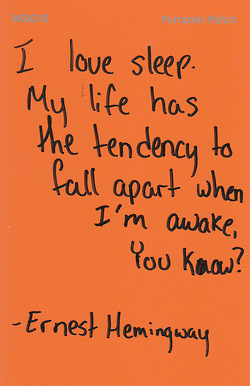 Pumpkin Patch
I love sleep.
My life has
the tendency to
fall apart when
I'm awake,
You know?
-Ernest Hemingway